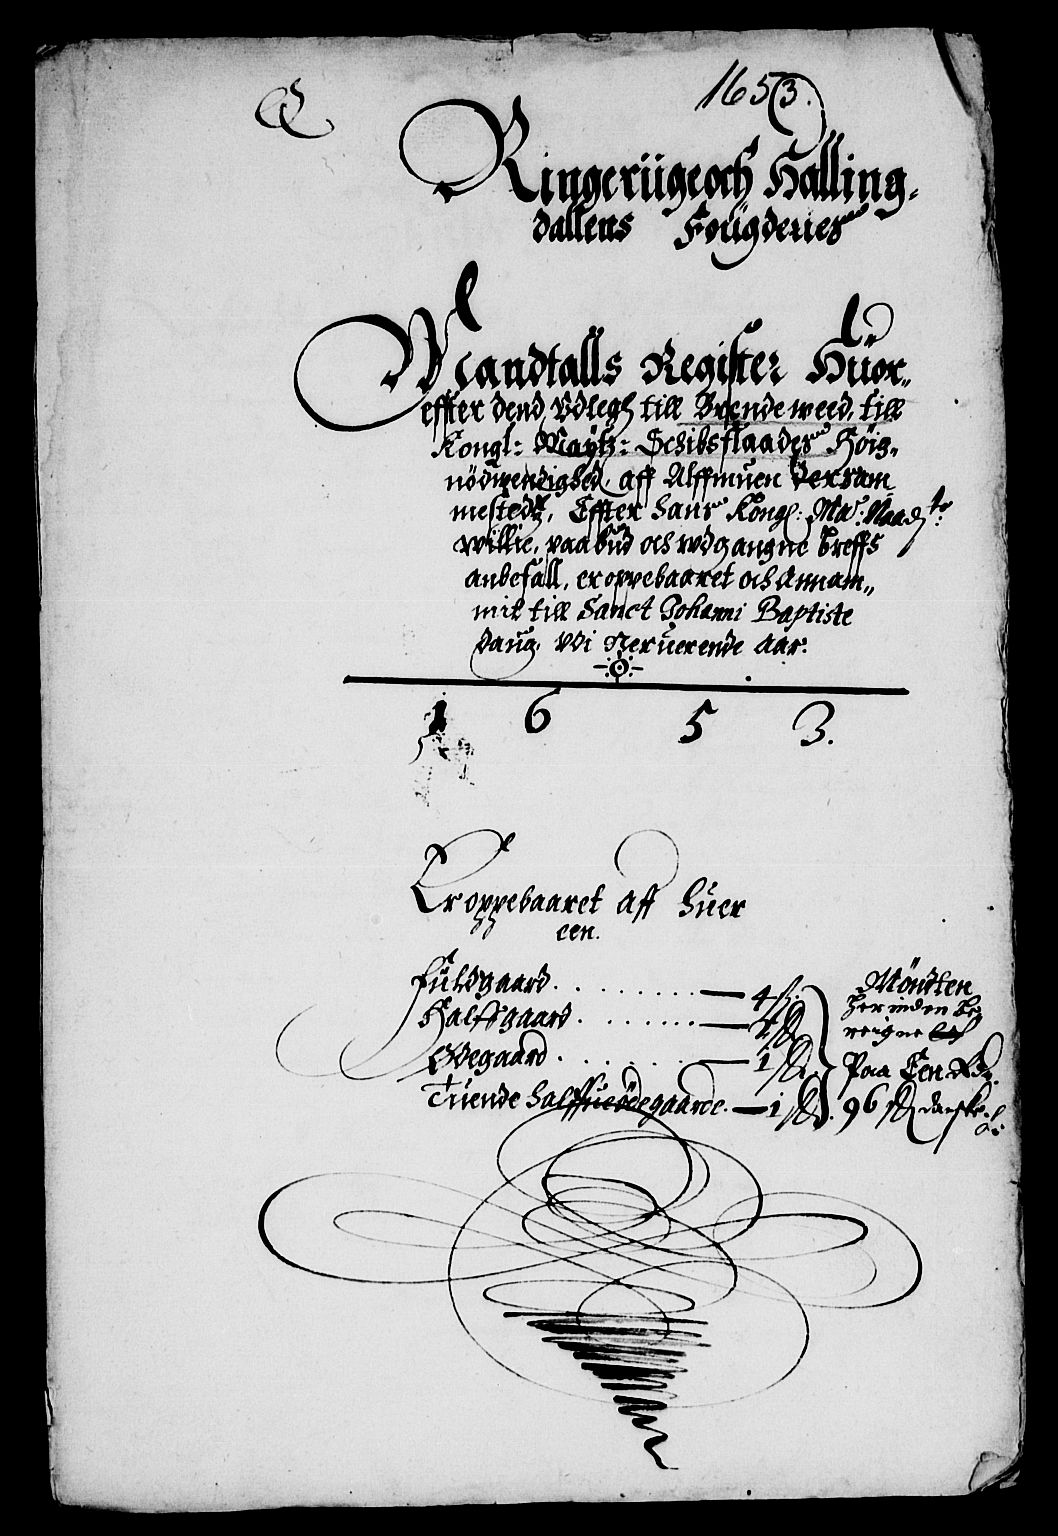 1653.
Ringeriige och Halling,
dallens Fougderies
Mandtalls Register Huor,,
effter dend Udlegh till Brende weed, till
Kongl: Maytz: Schibsflaades Höig,
nödwendighed, aff Allmuen
mestedz, Effter hans Kongl: Ma: Naadste
willie, paabud och udgangne breffs
anbefall, er oppebaaret och Annam,,
mit till Sanct Johanni Baptiste
daug, Udi Neruerende Aar.
1 6 5 3.
Er oppebaaret aff huer
een.
Fuldgaard . . . . . . . — 4 ß:
Halffgaard . . . . . . . — 2 ß
Ödegaard . . . . . — 1 ß
Tuende halffue ödegaarde. — 1 ß.
Mönten
herinden be
reigne
Paa Een Rdr.
96 ß danske.